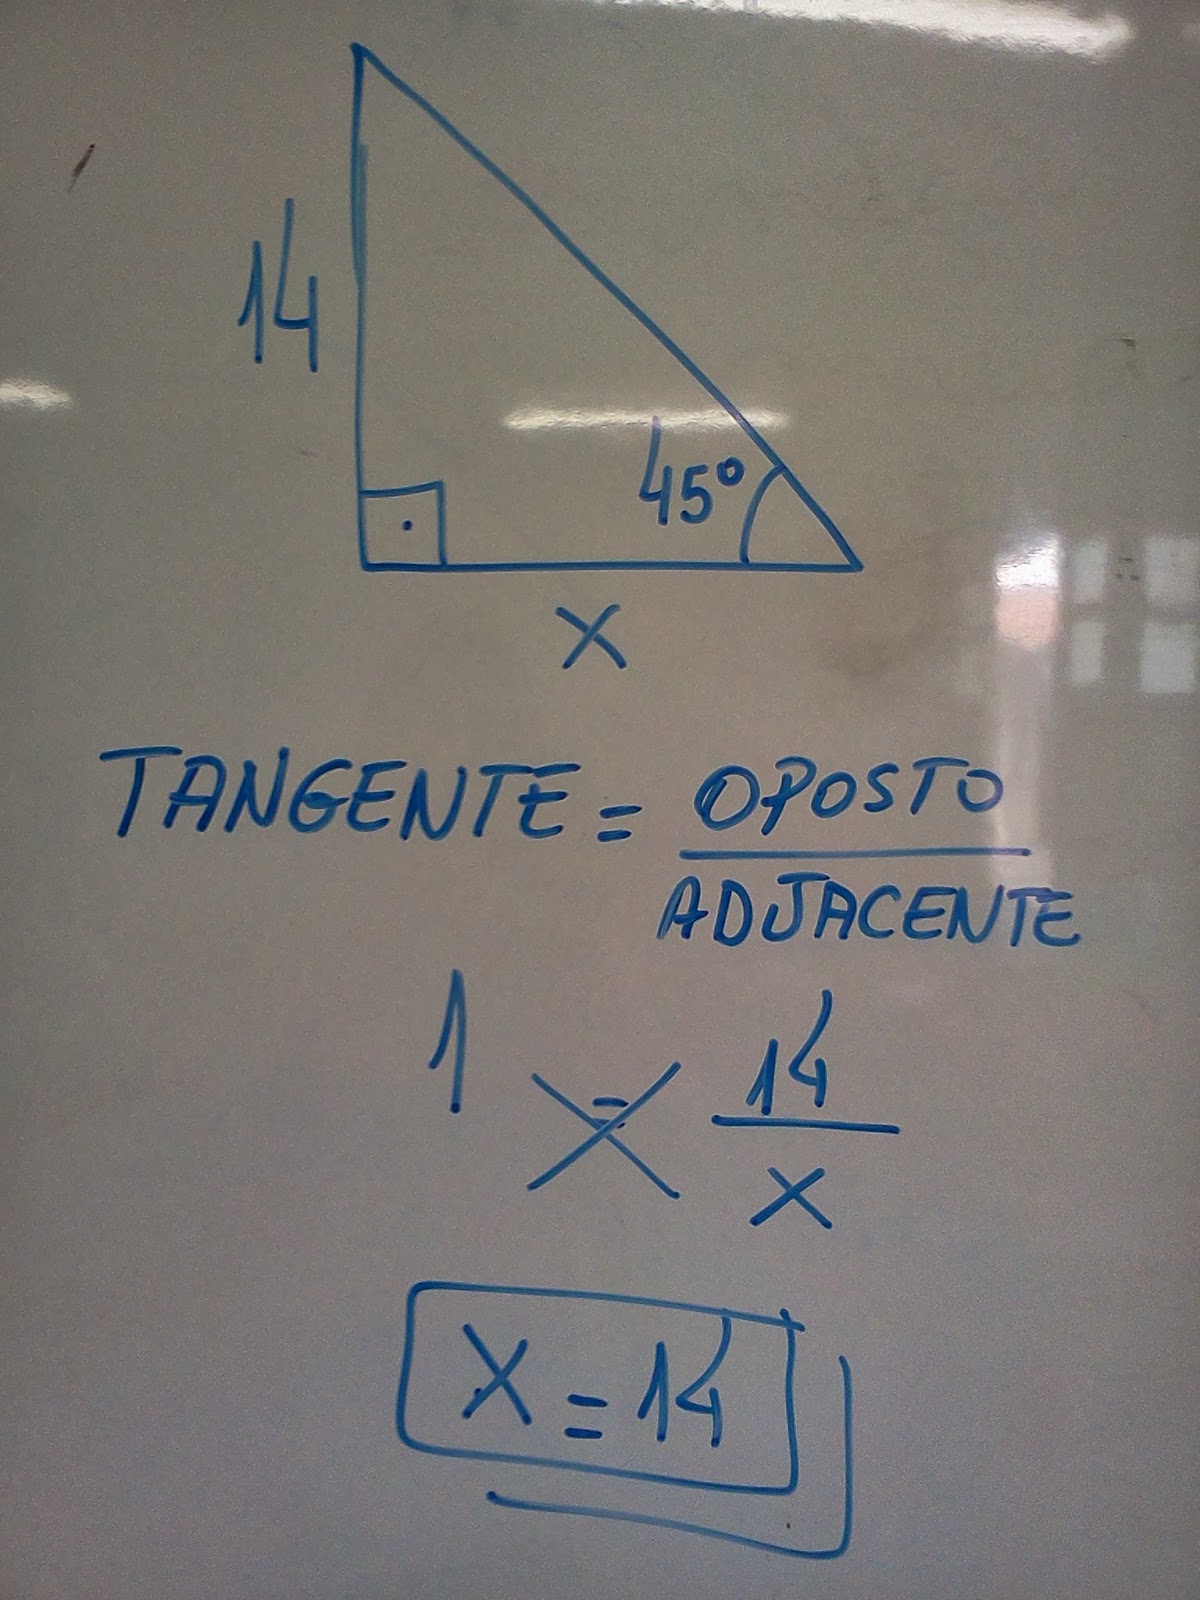 14
45°
X
TANGENTE = OPOSTO
ADJACENTE
1 = 14
X
X = 14